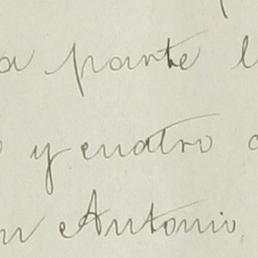 a parte l
y cuatro
n Antonio